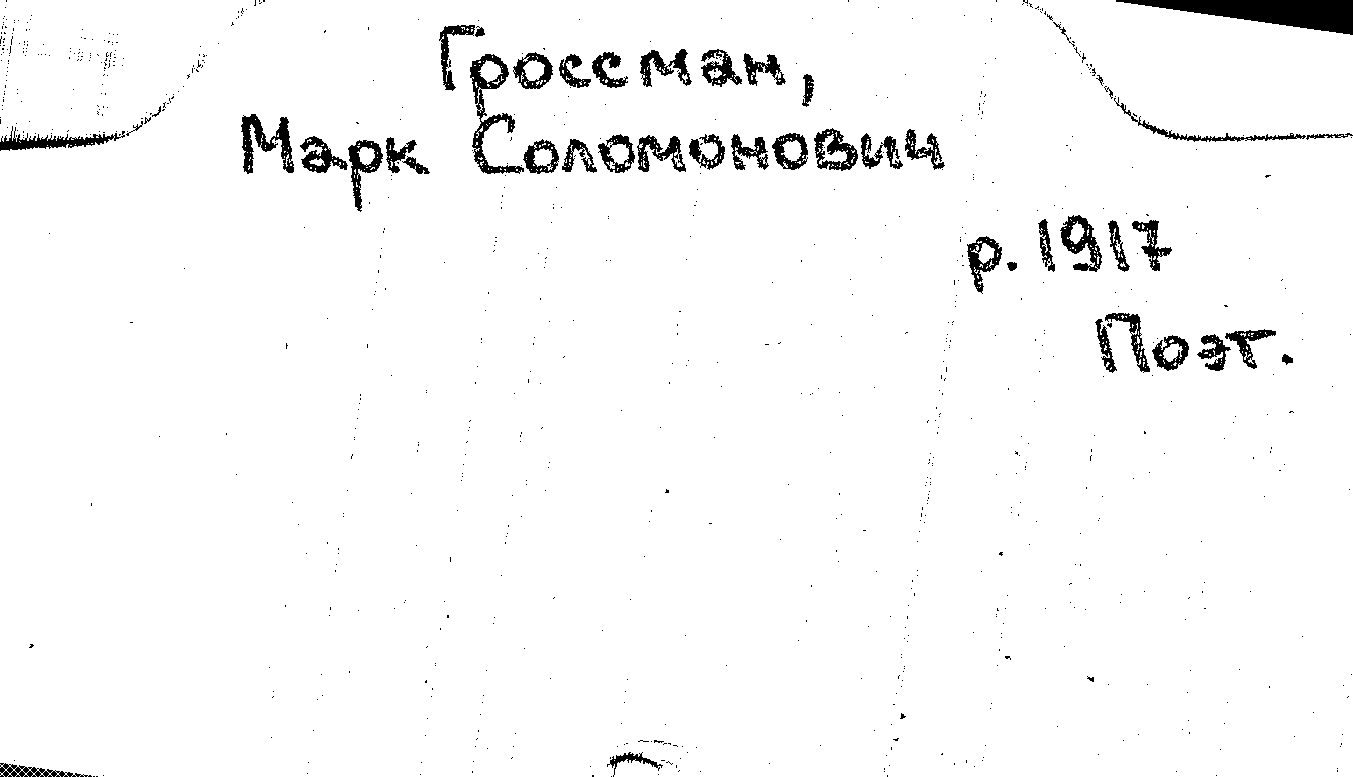 Гроссман,
Марк Соломонович
р. 1917
Поэт.